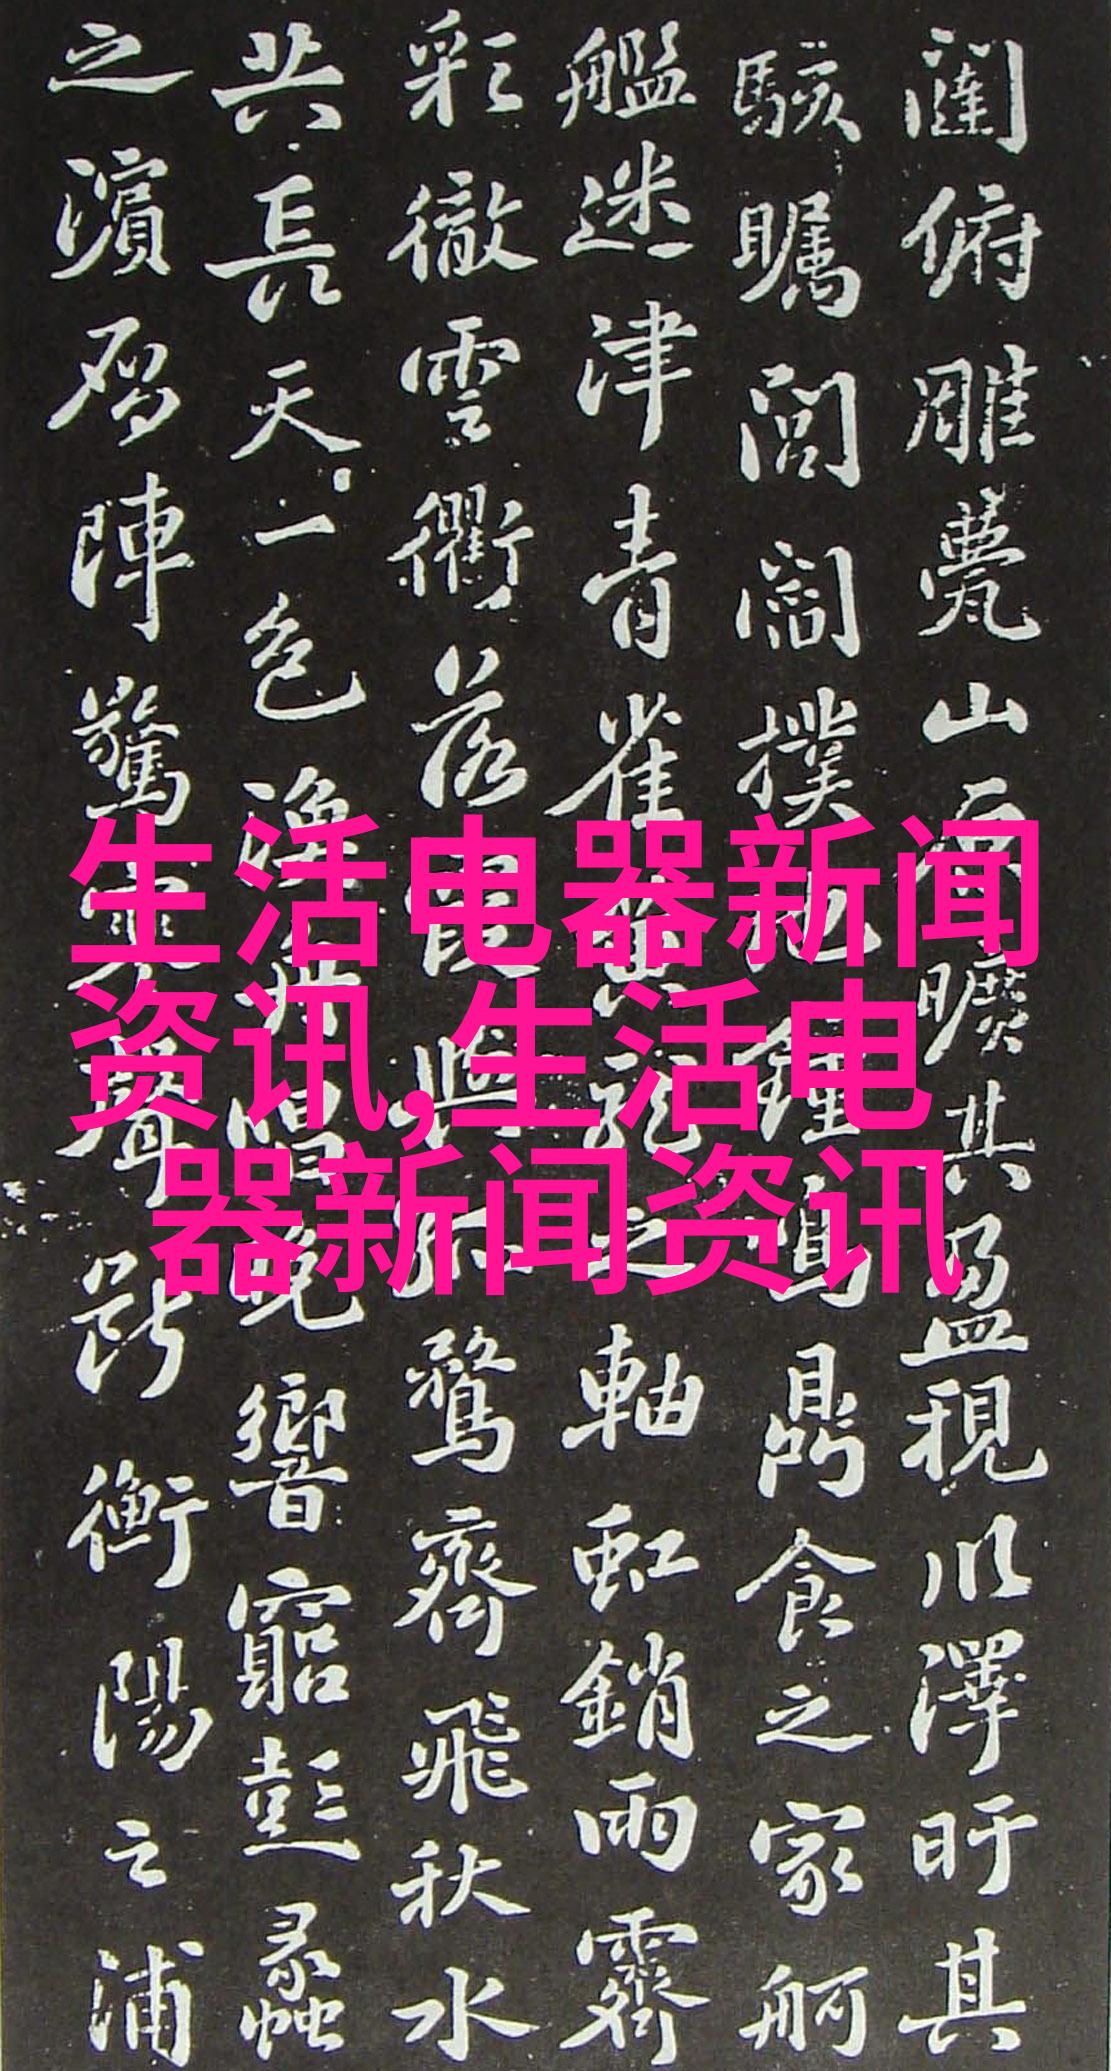 闥俯雕甍山原曠其盈視川澤盱其
駭矚閭閻撲地鍾鳴鼎食之家舸
艦迷津青雀黄龍之軸虹銷雨霽
彩徹雲衢落霞與孤鶩齊飛秋水
共長天一色漁舟唱晚響窮彭蠡
之濱鴈陣驚寒聲斷衡陽之浦
生活电器新闻
资讯,生活电
器新闻资讯